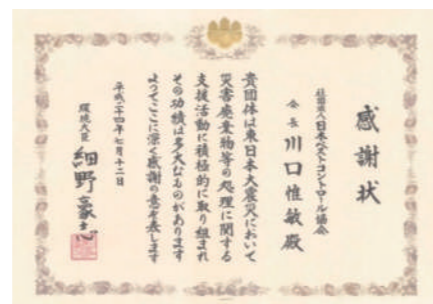 感謝状
社団法人日本ペストコントロール協会
会長 川口惟敏殿
貴団体は東日本大震災において
災害廃棄物等の処理に関する
支援活動に積極的に取り組まれ
その功績は多大なるものがあります
よってここに深く感謝の意を表します
平成二十四年七月十二日
環境大臣 細野豪志